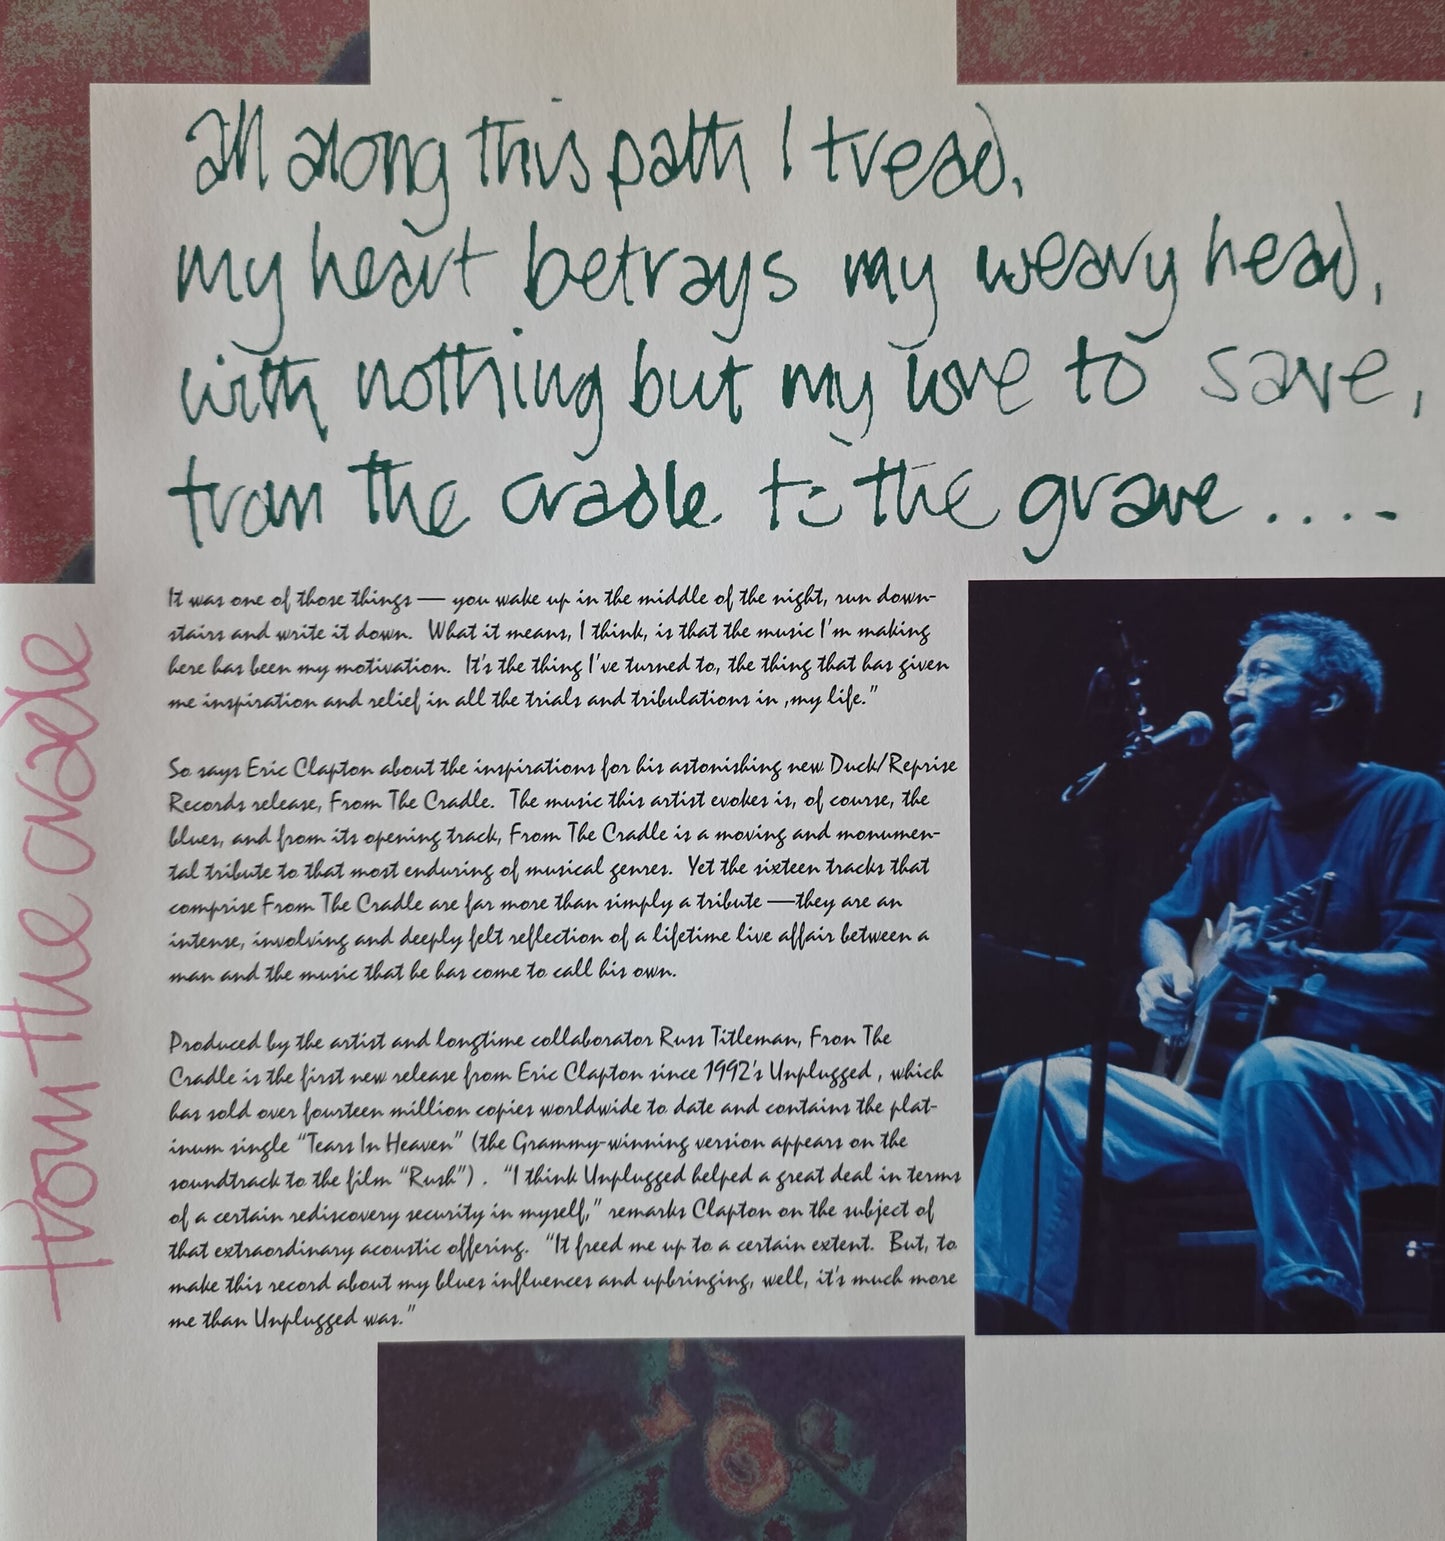 all along this path I tread,
my heart betrays my weary head,
with nothing but my love to save,
from the cradle to the grave....
from the cradle
It was one of those things — you wake up in the middle of the night, run down-
stairs and write it down. What it means, I think, is that the music I'm making
here has been my motivation. It's the thing I've turned to, the thing that has given
me inspiration and relief in all the trials and tribulations in ,my life."
So says Eric Clapton about the inspirations for his astonishing new Duck/Reprise
Records release, From The Cradle. The music this artist evokes is, of course, the
blues, and from its opening track, From The Cradle is a moving and monumen-
tal tribute to that most enduring of musical genres. Yet the sixteen tracks that
comprise From The Cradle are far more than simply a tribute —they are an
intense, involving and deeply felt reflection of a lifetime live affair between a
man and the music that he has come to call his own.
Produced by the artist and longtime collaborator Russ Titleman, Fron The
Cradle is the first new release from Eric Clapton since 1992's Unplugged , which
has sold over fourteen million copies worldwide to date and contains the plat-
inum single "Tears In Heaven" (the Grammy-winning version appears on the
soundtrack to the film "Rush") . "I think Unplugged helped a great deal in terms
of a certain rediscovery security in myself," remarks Clapton on the subject of
that extraordinary acoustic offering. "It freed me up to a certain extent. But, to
make this record about my blues influences and upbringing, well, it's much more
me than Unplugged was."